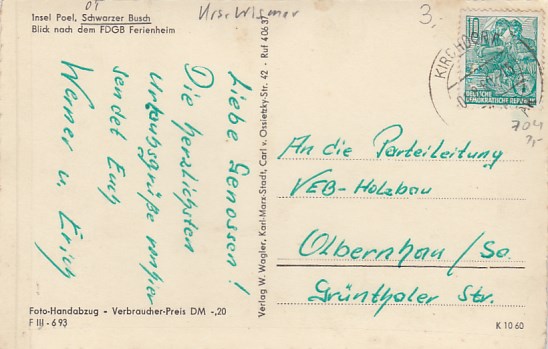 Insel Poel, Schwarzer Busch
Blick nach dem FDGB Ferienheim
OT
Krs. Wismar
3,-
Liebe Genossen!
Die herzlichsten
Urlaubsgrüße von hier
sendet Euch
Werner u. Erich
Verlag W. Wagler, Karl-Marx-Stadt, Carl v. Ossietzky-Str. 42 - Ruf 40637
10
DEUTSCHE
DEMOKRATISCHE REPUBLIK
KIRCHDORF
704
An die Parteileitung
VEB-Holzbau
Olbernhau/Sa.
Grünthaler Str.
Foto-Handabzug - Verbraucher-Preis DM -,20
F III - 693
K 10 60